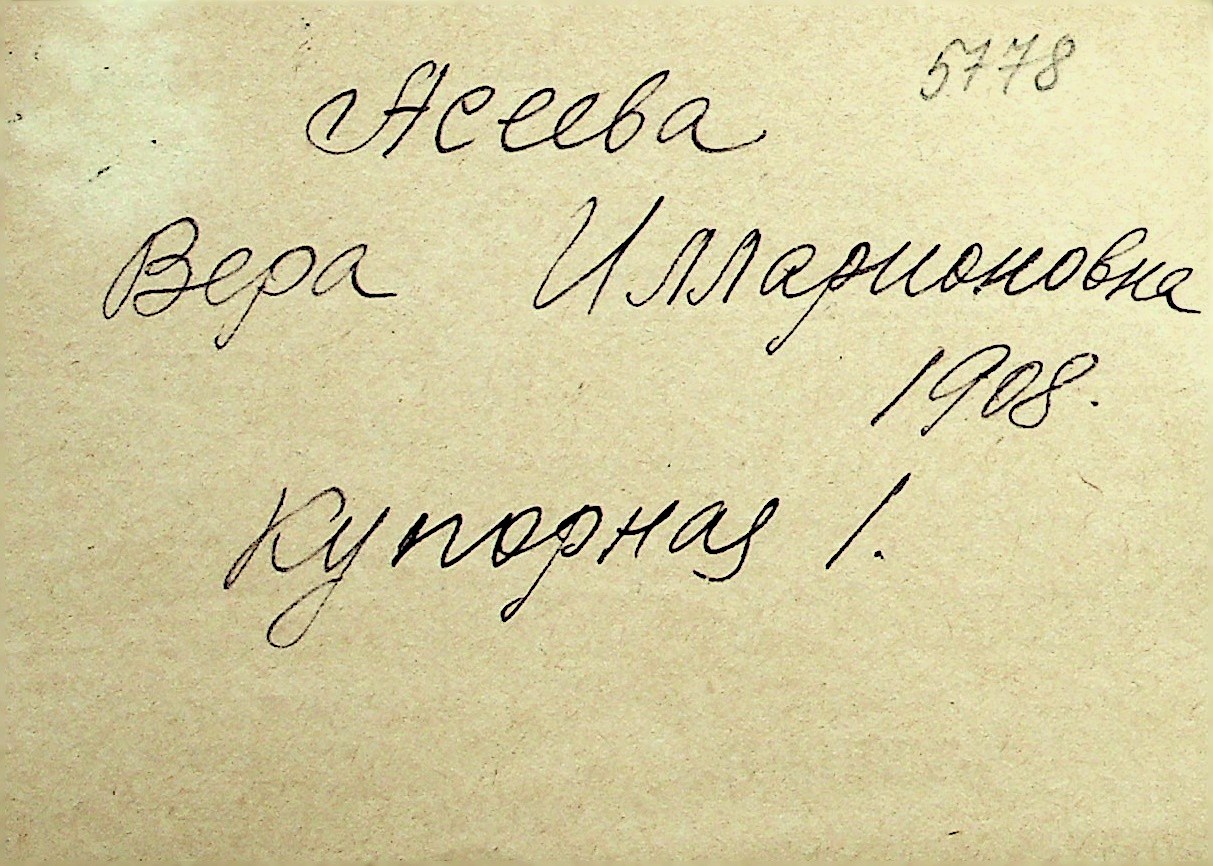 5778
Асеева
Вера Илларионовна
1908.
Купорная 1.